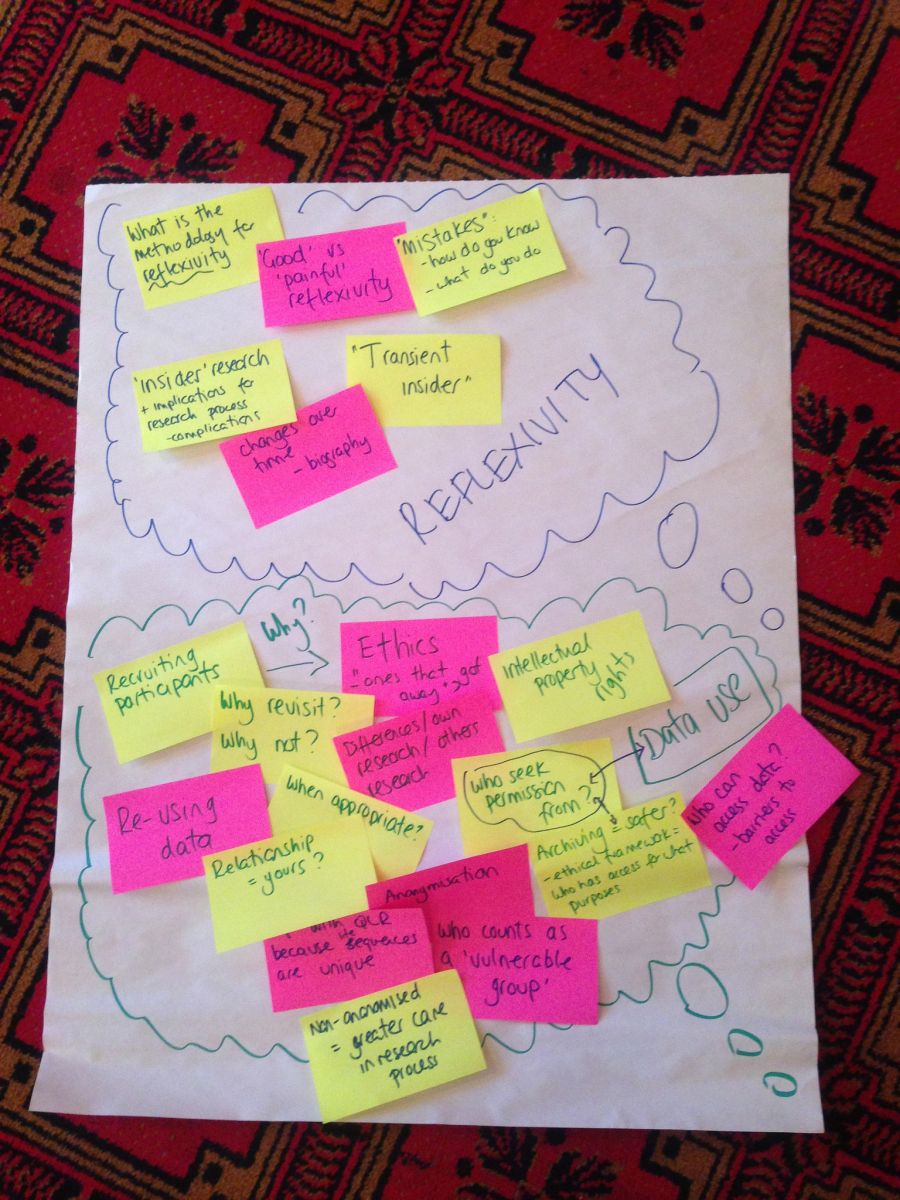 What is the
methodology for
reflexivity
'Good' vs
'painful'
reflexivity
"Mistakes":
- how do you know
- what do you do
'insider' research
+ implications for
research process
- complications
"Transient
insider"
changes over
time
- biography
REFLEXIVITY
Recruiting
participants
Why?
Ethics
- "ones that got
away"
Intellectual
property
rights
Why revisit?
Why not?
Differences/own
research/others
research
Data use
Who seek
permission
from?
Who can
access data?
- barriers to
access
Re-using
data
When appropriate?
Relationship
= yours?
Archiving = safer?
- ethical framework =
who has access for what
purposes
Anonymisation
with QLR
because life sequences
are unique
Who counts as
a 'vulnerable
group'
Non-anonomised
= greater care
in research
process